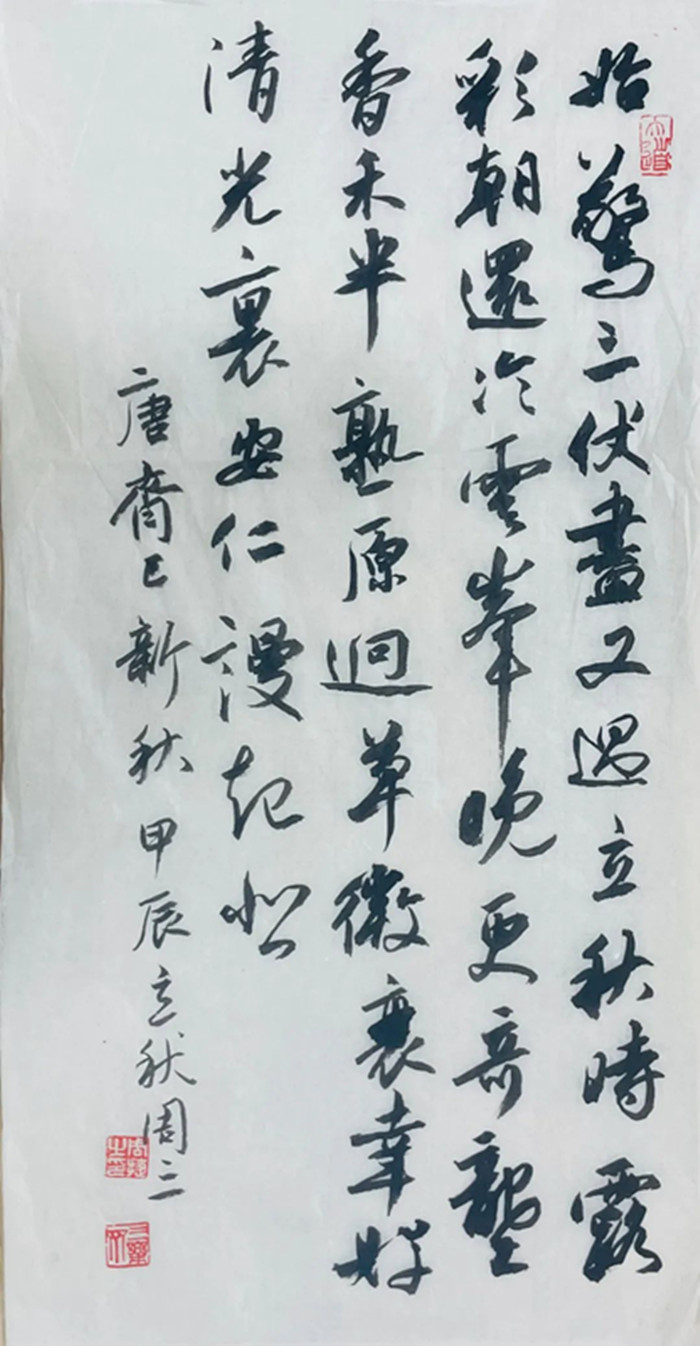 始驚三伏盡又遇立秋時露
彩朝還冷雲峯晚更奇壟
香禾半熟原迥草微衰幸好
清光裏安仁謾起悲
唐齊己新秋甲辰立秋周三